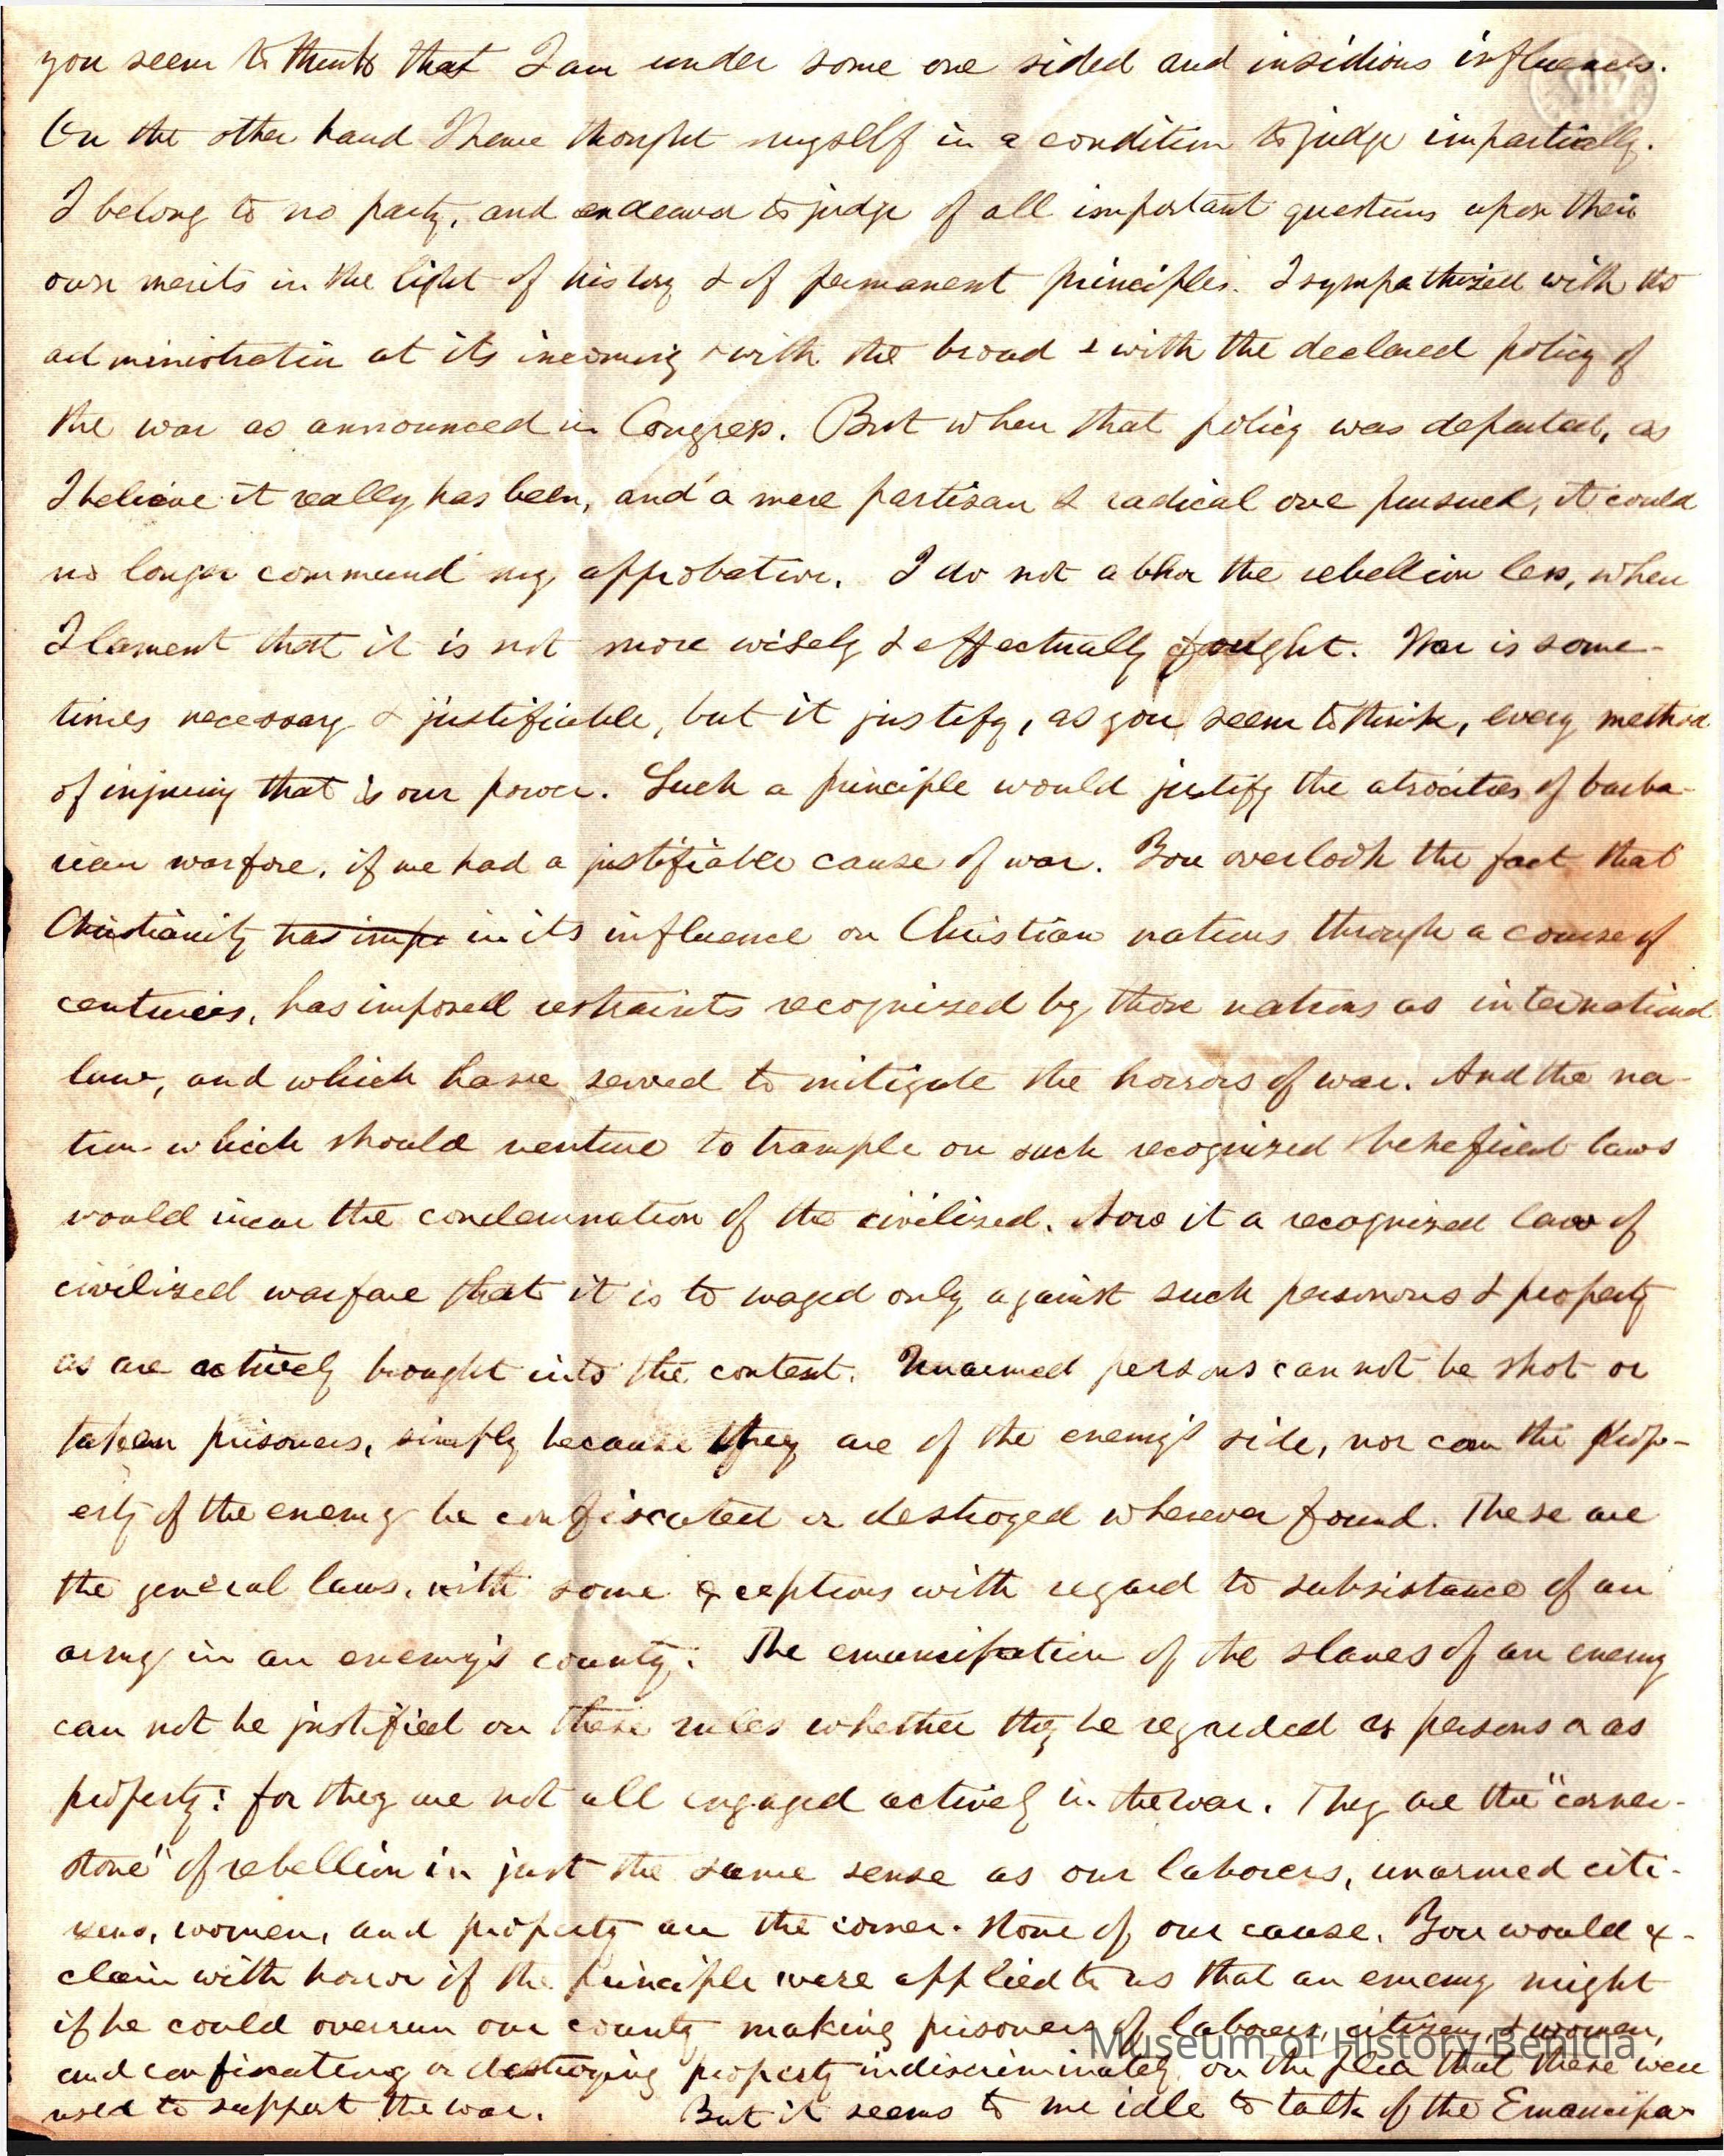 you seem to think that I am under some one sided and insidious influences.
On the other hand I have thought myself in a condition to judge impartially.
I belong to no party, and endeavor to judge of all important questions upon their
own merits in the light of history & of permanent principles. I sympathized with the
administration at its incoming & with the broad & with the declared policy of
the war as announced in Congress. But when that policy was departed, as
I believe it really has been, and a mere partizan & radical one pursued, it could
no longer command my approbation. I do not abhor the rebellion less, when
I lament that it is not more wisely & effectually fought. War is some-
times necessary & justifiable, but it justify, as you seem to think, every method
of injuring that is our power. Such a principle would justify the atrocities of barba-
rian warfare, if we had a justifiable cause of war. You overlook the fact that
Christianity has impo in its influence on Christian nations through a course of
centuries, has imposed restraints recognized by those nations as international
law, and which have served to mitigate the horrors of war. And the na-
tion which should venture to trample on such recognized & beneficent laws
would incur the condemnation of the civilized. Now it a recognized law of
civilized warfare that it is to waged only against such persons & property
as are actively brought into the contest. Unarmed persons can not be shot or
taken prisoners, simply because they are of the enemy's side, nor can the prop-
erty of the enemy be confiscated or destroyed wherever found. These are
the general laws, with some exceptions with regard to subsistance of an
army in an enemy's county. The emancipation of the slaves of an enemy
can not be justified on these rules whether they be regarded as persons or as
property: for they are not all engaged actively in the war. They are the "corner-
stone" of rebellion in just the same sense as our laborers, unarmed citi-
zens, women, and property are the corner-stone of our cause. You would ex-
claim with horror if the principle were applied to us that an enemy might
if he could overrun our county making prisoners of laborers, citizens, & women,
and confiscating or destroying property indiscriminately, on the plea that these were
used to support the war. But it seems to me idle to talk of the Emancipa-
Museum of History Benicia